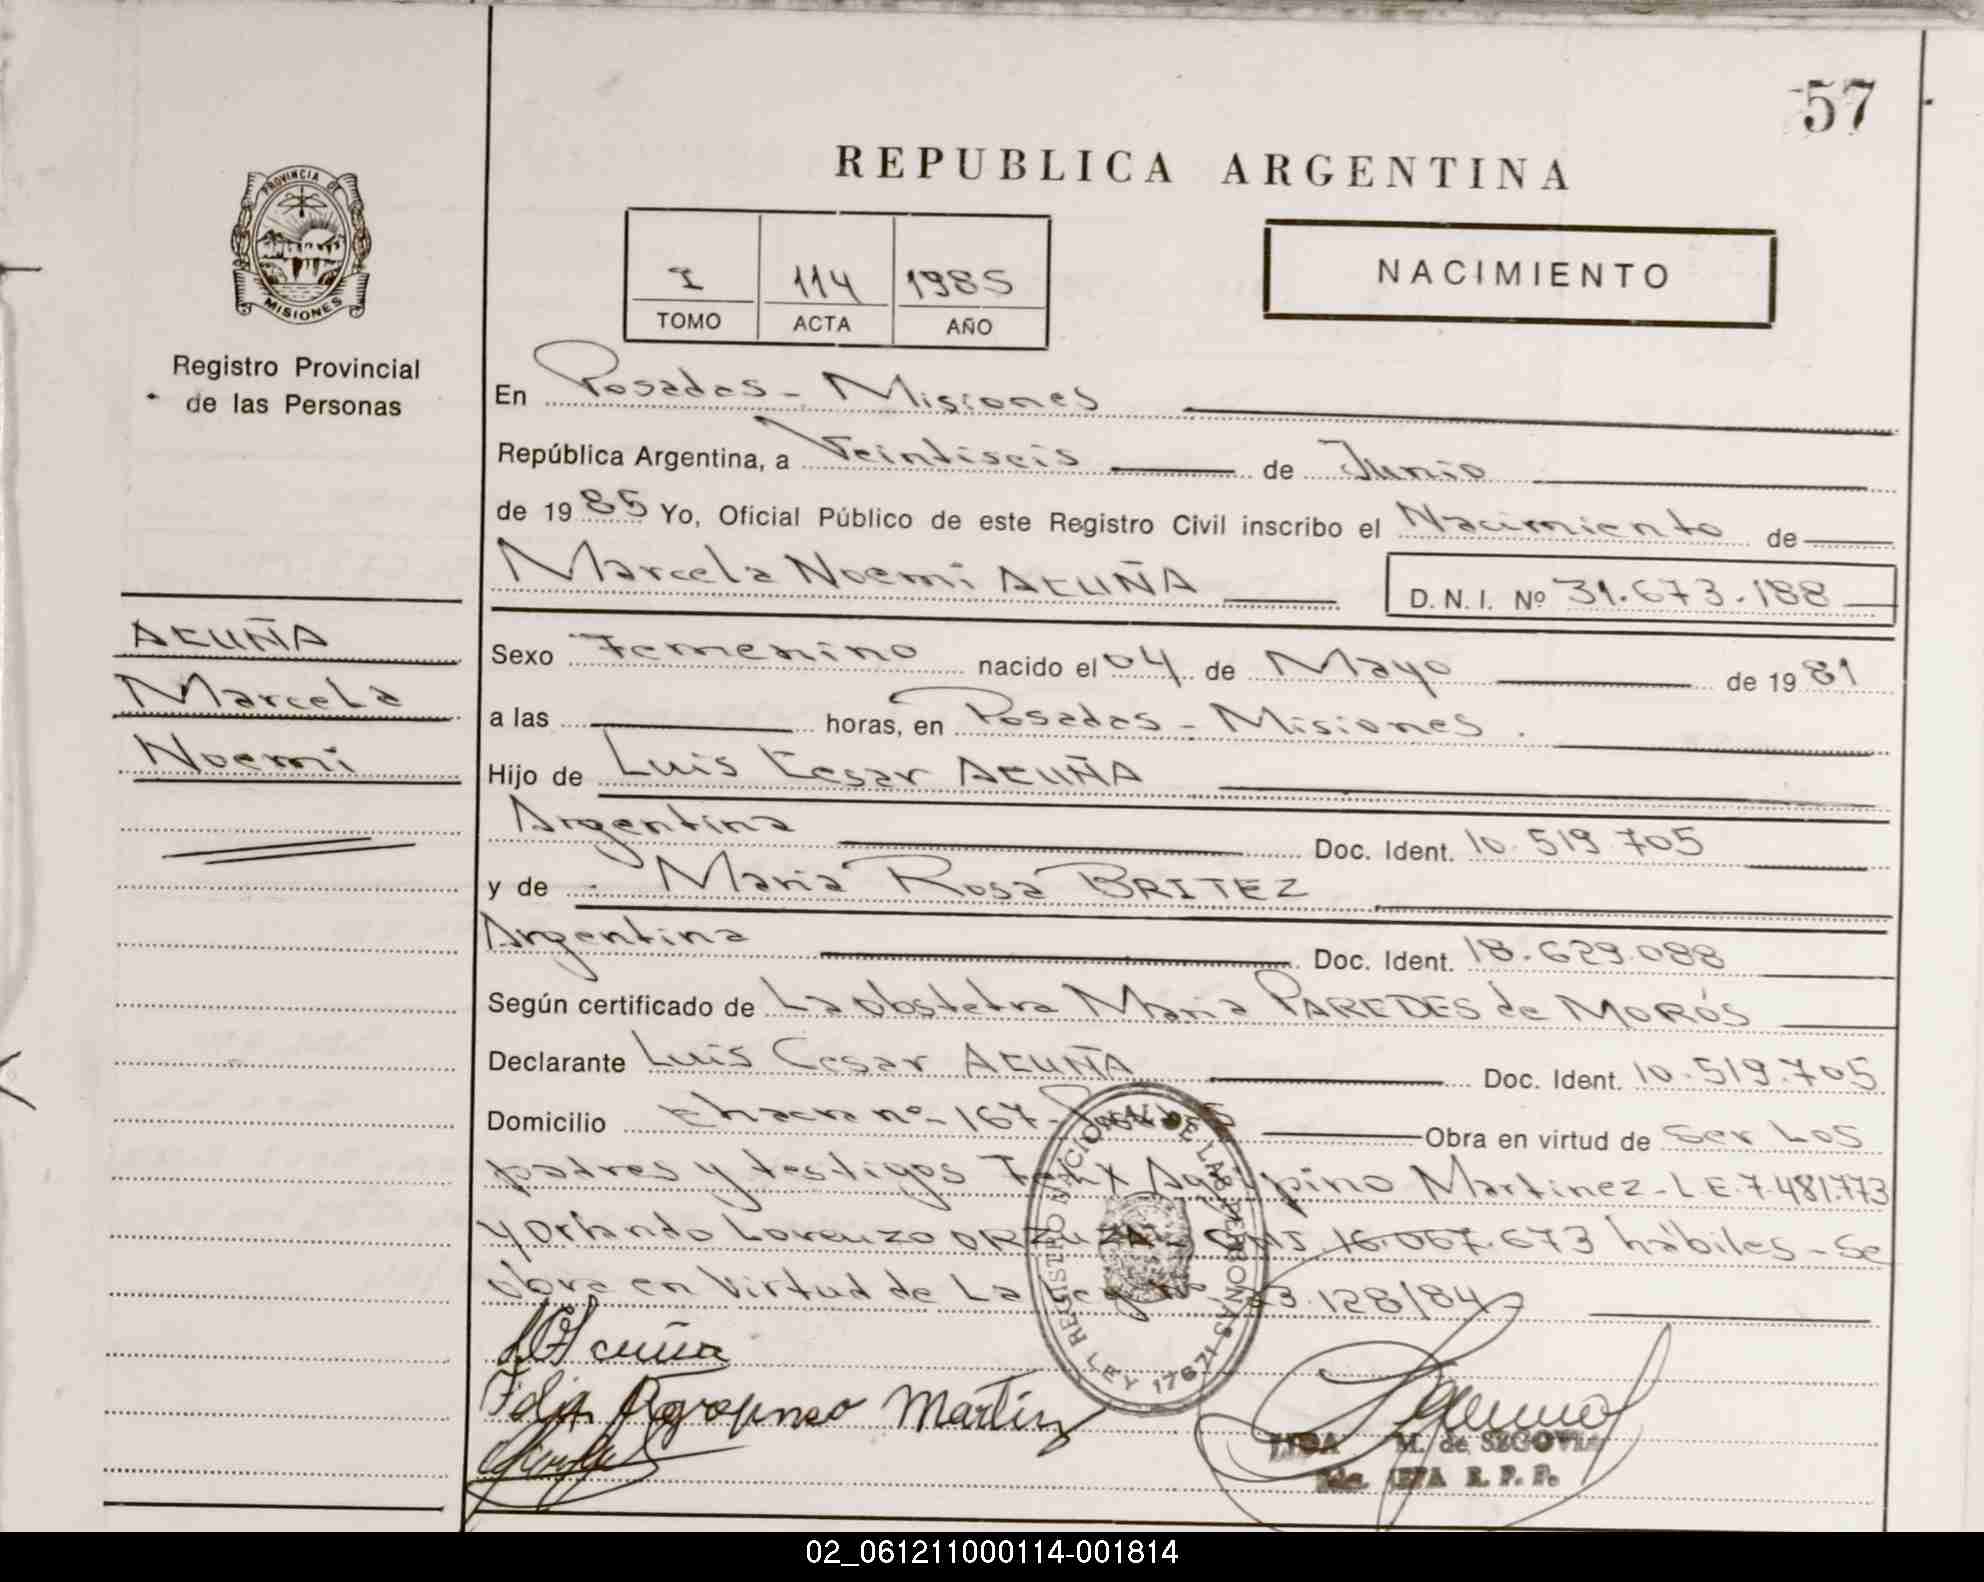 57
REPUBLICA ARGENTINA
PROVINCIA DE
MISIONES
I 114 1985
TOMO ACTA AÑO
NACIMIENTO
Registro Provincial
de las Personas
En Posadas - Misiones
República Argentina, a Veintiseis de Junio
de 1985 Yo, Oficial Público de este Registro Civil inscribo el Nacimiento de
Marcela Noemi ACUÑA D.N.I. Nº 31.673.188
ACUÑA
Marcela
Noemi
Sexo Femenino nacido el 04 de Mayo de 1981
a las horas, en Posadas - Misiones.
Hijo de Luis Cesar ACUÑA
Argentina Doc. Ident. 10.519.705
y de Maria Rosa BRITEZ
Argentina Doc. Ident. 18.629.088
Según certificado de La Obstetra Maria PAREDES de MORÓS
Declarante Luis Cesar ACUÑA Doc. Ident. 10.519.705
Domicilio Chacra nº 167 - Obra en virtud de Ser Los
padres y testigos Agripino Martinez - L.E. 7.481.773
y Orlando Lorenzo 16.067.673 hábiles - Se
obra en Virtud de La Ley 23.128/84
REGISTRO NACIONAL DE LAS PERSONAS
LEY 17671
Acuña
Martin
M. de SEGOVIA
R. P. P.
02_061211000114-001814